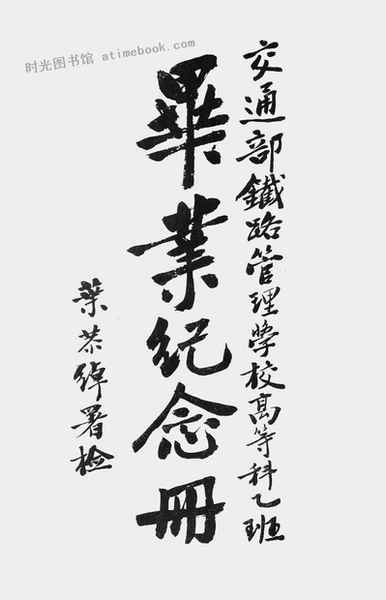 时光图书馆 atimebook.com
交通部鐵路管理學校高等科乙班
畢業紀念冊
葉恭綽署检